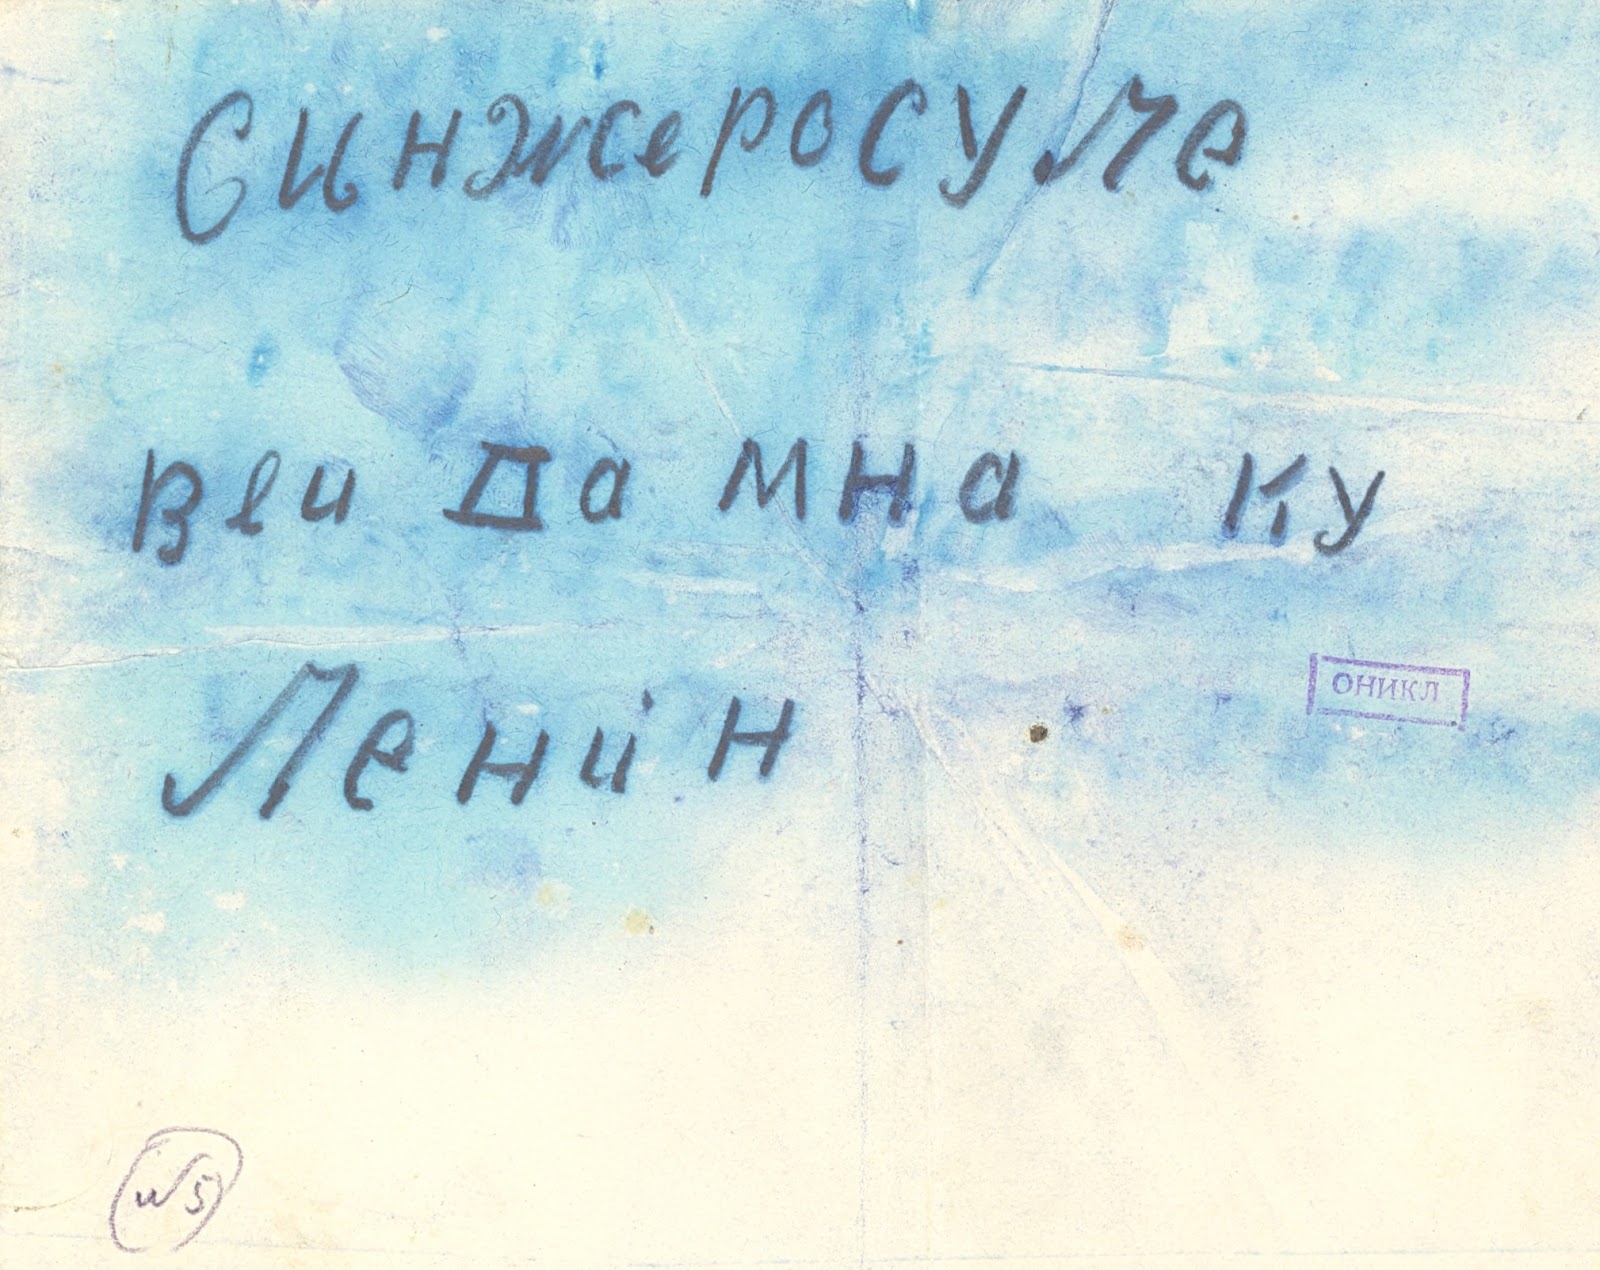 Синжеросуле
веи да мна ку
Ленин
ОНИКЛ
w5